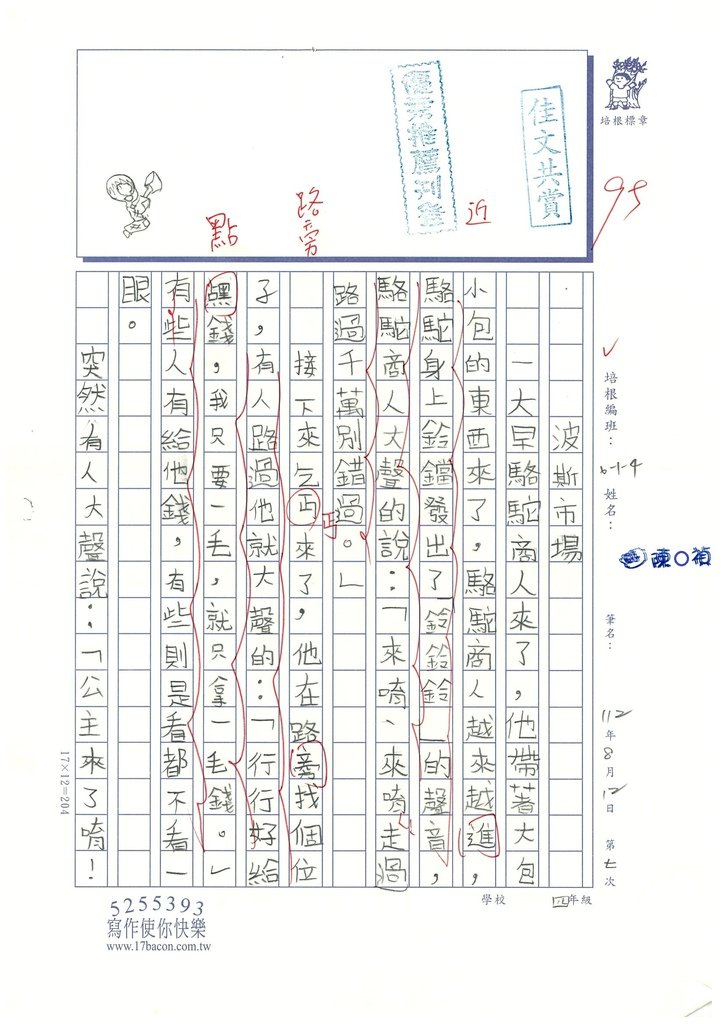 培根標章
佳文共賞
優秀推薦刊登
95
近
路旁
點
培根編班：6-1-4 姓名：陳〇禎 筆名： 112年8月12日 第七次
學校 四年級
波斯市場
一大早駱駝商人來了，他帶著大包
小包的東西來了，駱駝商人越來越進，
駱駝身上鈴鐺發出了「鈴鈴鈴」的聲音，
駱駝商人大聲的說：「來唷、來唷走過
路過千萬別錯過。」
接下來乞丐來了，他在路旁找個位
丐
子，有人路過他就大聲的：「行行好給
錢，我只要一毛，就只拿一毛錢。」
有些人有給他錢，有些則是看都不看一
眼。
突然有人大聲說：「公主來了唷！
17×12=204
5255393
寫作使你快樂
www.17bacon.com.tw